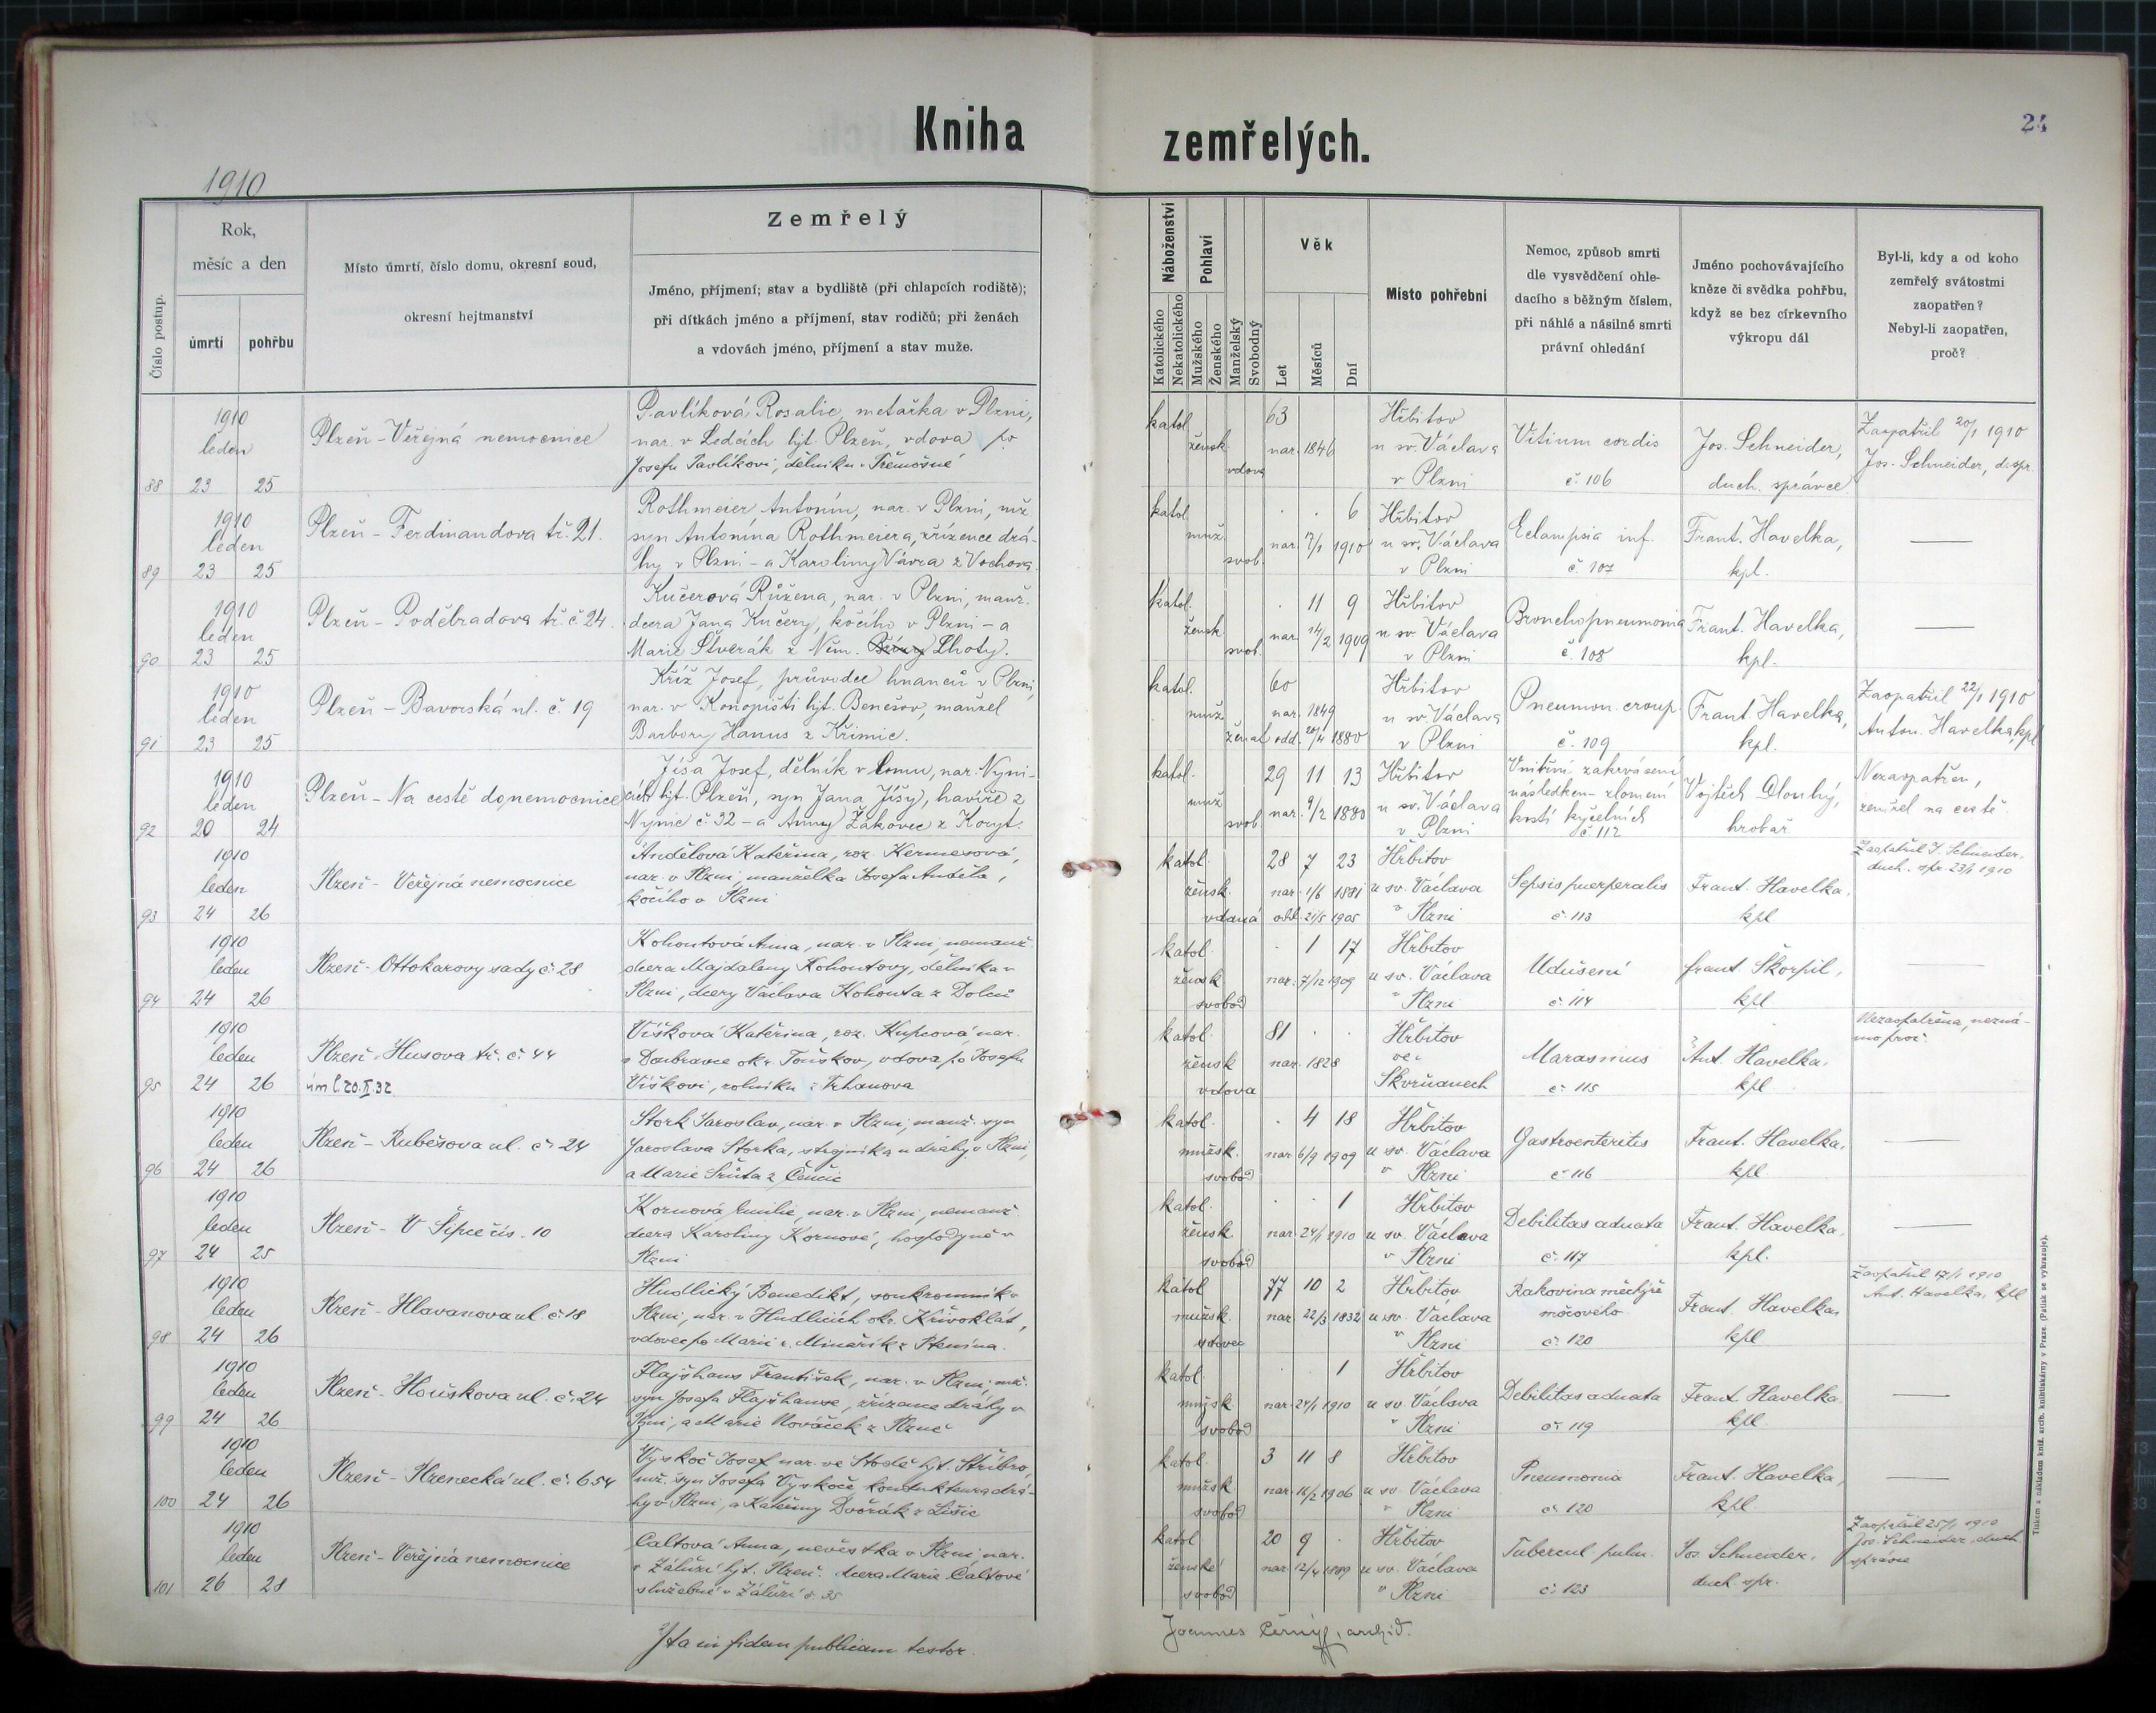 Kniha
zemřelých.
24
1910
Číslo postup.
Rok,
měsíc a den
úmrtí
pohřbu
Místo úmrtí, číslo domu, okresní soud,
okresní hejtmanství
Zemřelý
Jméno, příjmení; stav a bydliště (při chlapcích rodiště);
při dítkách jméno a příjmení, stav rodičů; při ženách
a vdovách jméno, příjmení a stav muže.
Náboženství
Katolického
Nekatolického
Pohlaví
Mužského
Ženského
Manželský
Svobodný
Věk
Let
Měsíců
Dní
Místo pohřební
Nemoc, způsob smrti
dle vysvědčení ohle-
dacího s běžným číslem,
při náhlé a násilné smrti
právní ohledání
Jméno pochovávajícího
kněze či svědka pohřbu,
když se bez církevního
výkropu dál
Byl-li, kdy a od koho
zemřelý svátostmi
zaopatřen?
Nebyl-li zaopatřen,
proč?
88
1910
leden
23 25
Plzeň - Veřejná nemocnice
Pavlíková Rosalie, metařka v Plzni,
nar. v Ledcích hjt. Plzeň, vdova po
Josefu Pavlíkovi, dělníku v Třemošné
katol
žensk.
vdova
63
nar. 1846
Hřbitov
u sv. Václava
v Plzni
Vitium cordis
č. 106
Jos. Schneider,
duch. správce
Zaopatřil 20/1 1910
Jos. Schneider, d. spr.
89
1910
leden
23 25
Plzeň - Ferdinandova tř. 21.
Rothmeier Antonín, nar. v Plzni, mž.
syn Antonína Rothmeiera, zřízence drá-
hy v Plzni - a Karoliny Vávra z Vochova.
katol
muž.
svob.
. . 6
nar. 17/1 1910
Hřbitov
u sv. Václava
v Plzni
Eclampsia inf.
č. 107
Frant. Havelka,
kpl.
90
1910
leden
23 25
Plzeň - Poděbradova tř. č. 24.
Kučerová Růžena, nar. v Plzni, manž.
dcera Jana Kučery, kočího v Plzni - a
Marie Štverák z Něm. Lhoty.
katol.
žensk
svob.
. 11 9
nar. 14/2 1909
Hřbitov
u sv. Václava
v Plzni
Bronchopneumonia
č. 108
Frant. Havelka,
kpl.
91
1910
leden
23 25
Plzeň - Bavorská ul. č. 19
Kříž Josef, průvodce hnanců v Plzni,
nar. v Konopišti hjt. Benešov, manžel
Barbory Hanus z Křimic.
katol.
muž
ženat
60
nar. 1849
odd. 20/4 1880
Hřbitov
u sv. Václava
v Plzni
Pneumon. croup.
č. 109
Frant. Havelka,
kpl.
Zaopatřil 22/1 1910
Anton. Havelka, kpl
92
1910
leden
20 24
Plzeň - Na cestě do nemocnice
Jíša Josef, dělník v lomu, nar. Nýni-
cích hjt. Plzeň, syn Jana Jíšy, havíře z
Nýnic č. 32 - a Anny Žakovec z Kouyt.
katol.
muž
svob.
29 11 13
nar. 9/2 1880
Hřbitov
u sv. Václava
v Plzni
Vnitřní zakrvácení
následkem zlomení
kostí kyčelních
č. 112
Vojtěch Dlouhý,
hrobař
Nezaopatřen,
zemřel na cestě.
93
1910
leden
24 26
Plzeň - Veřejná nemocnice
Andělová Kateřina, roz. Kermesová,
nar. v Plzni, manželka Josefa Anděla,
kočího v Plzni
katol.
žensk.
vdaná
28 7 23
nar. 1/6 1881
odd. 21/5 1905
Hřbitov
u sv. Václava
v Plzni
Sepsis puerperalis
č. 113
Frant. Havelka,
kpl
Zaopatřil J. Schneider,
duch. spr. 23/1 1910
94
1910
leden
24 26
Plzeň - Ottokarovy sady č. 28
Kohoutová Anna, nar. v Plzni, nemanž.
dcera Majdaleny Kohoutovy, dělnika v
Plzni, dcery Václava Kohouta z Dolců
katol.
žensk.
svobod
. 1 17
nar. 7/12 1909
Hřbitov
u sv. Václava
v Plzni
Udušení
č. 114
Frant. Škorpil,
kpl
95
1910
leden
24 26
Plzeň - Husova tř. č. 44
úm l. 20.X.32
Víšková Kateřina, roz. Kupcová, nar.
v Doubravce okr. Touškov, vdova po Josefu
Víškovi, rolníku z Trhanova
katol.
žensk
vdova
81 . .
nar. 1828
Hřbitov
ve
Skvrňanech
Marasmus
č. 115
Ant. Havelka,
kpl
Nezaopatřena, nezná-
mo proč.
96
1910
leden
24 26
Plzeň - Rubešova ul. č. 24
Stork Jaroslav, nar. v Plzni, manž. syn
Jaroslava Storka, strojníka u dráhy v Plzni,
a Marie Šrůta z Čenčic
katol.
mužsk.
svobod
. 4 18
nar. 6/9 1909
Hřbitov
u sv. Václava
v Plzni
Gastroenteritis
č. 116
Frant. Havelka,
kpl
97
1910
leden
24 25
Plzeň - V Šipce čís. 10
Kornová Emilie, nar. v Plzni, nemanž.
dcera Karoliny Kornové, hospodyně v
Plzni
katol.
žensk.
svobod
. . 1
nar. 24/1 1910
Hřbitov
u sv. Václava
v Plzni
Debilitas adnata
č. 117
Frant. Havelka,
kpl.
98
1910
leden
24 26
Plzeň - Hlavanova ul. č. 18
Hudlický Benedikt, soukromník v
Plzni, nar. v Hudlicích okr. Křivoklát,
vdovec po Marii r. Minařík z Ptenína.
katol
mužsk.
vdovec
77 10 2
nar 22/3 1832
Hřbitov
u sv. Václava
v Plzni
Rakovina měchýře
močového
č. 120
Frant. Havelka,
kpl
Zaopatřil 17/1 1910
Ant. Havelka, kpl
99
1910
leden
24 26
Plzeň - Houškova ul. č. 24
Flajšhans František, nar. v Plzni, mž.
syn Josefa Flajšhanse, zřízence dráhy v
Plzni, a Marie Nováček z Plzně
katol.
mužsk.
svobod
. . 1
nar. 24/1 1910
Hřbitov
u sv. Václava
v Plzni
Debilitas adnata
č. 119
Frant. Havelka,
kpl.
100
1910
leden
24 26
Plzeň - Plzenecká ul. č. 654
Vyskoč Josef nar. ve Stodě hjt. Stříbro,
mž. syn Josefa Vyskoče, konduktéra drá-
hy v Plzni, a Kateřiny Dvořák z Lišic
katol.
mužsk.
svobod
3 11 8
nar. 16/2 1906
Hřbitov
u sv. Václava
v Plzni
Pneumonia
č. 120
Frant. Havelka,
kpl
101
1910
leden
26 28
Plzeň - Veřejná nemocnice
Caltová Anna, nevěstka v Plzni, nar.
v Záluží hjt. Plzeň. dcera Marie Caltové
služebné v Záluží č. 35
katol
ženské
svobod
20 9 .
nar. 12/4 1889
Hřbitov
u sv. Václava
v Plzni
Tubercul. pulm.
č. 123
Jos. Schneider,
duch. spr.
Zaopatřil 25/1 1910
Jos. Schneider, duch.
správce
Ita in fidem publicam testor.
Joannes Černý, archid.
Tiskem a nákladem kníž. arcib. knihtiskárny v Praze. (Patisk se vyhrazuje).